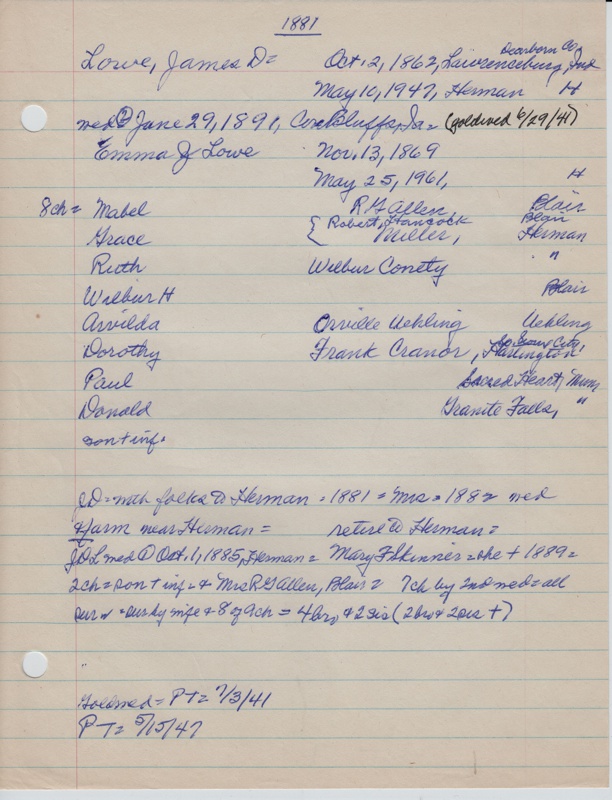 1881
Lowe, James D = Oct. 2, 1862, Lawrenceburg, Ind
Dearborn Co,
May 10, 1947, Herman H
wed ② June 29, 1891, Co Bluffs, Ia = (goldwed 6/29/41)
Emma J Lowe Nov. 13, 1869
May 25, 1961, H
8 ch = Mabel R G Allen, Blair
Robert, Hancock Blair
Grace { Miller, Herman
Ruth Wilbur Conety "
Wilbur H Blair
Arvilda Orville Uehling Uehling
So. Sioux City,
Dorothy Frank Cranor, Hartington
Paul Sacred Heart, Minn
Donald Granite Falls, "
son + inf.
JD = with folks to Herman = 1881 = Mrs = 1882 wed
farm near Herman = retire to Herman =
JDL wed ① Oct. 1, 1885, Herman = Mary F Skinner = she + 1889 =
2 ch = son + inf. & Mrs R G Allen, Blair = 7 ch by 2nd wed = all
sur = sur by wife & 8 of 9 ch = 4 bro & 2 sis (2 bro & 2 sis +)
"
Goldwed = PT = 7/3/41
PT = 5/15/47